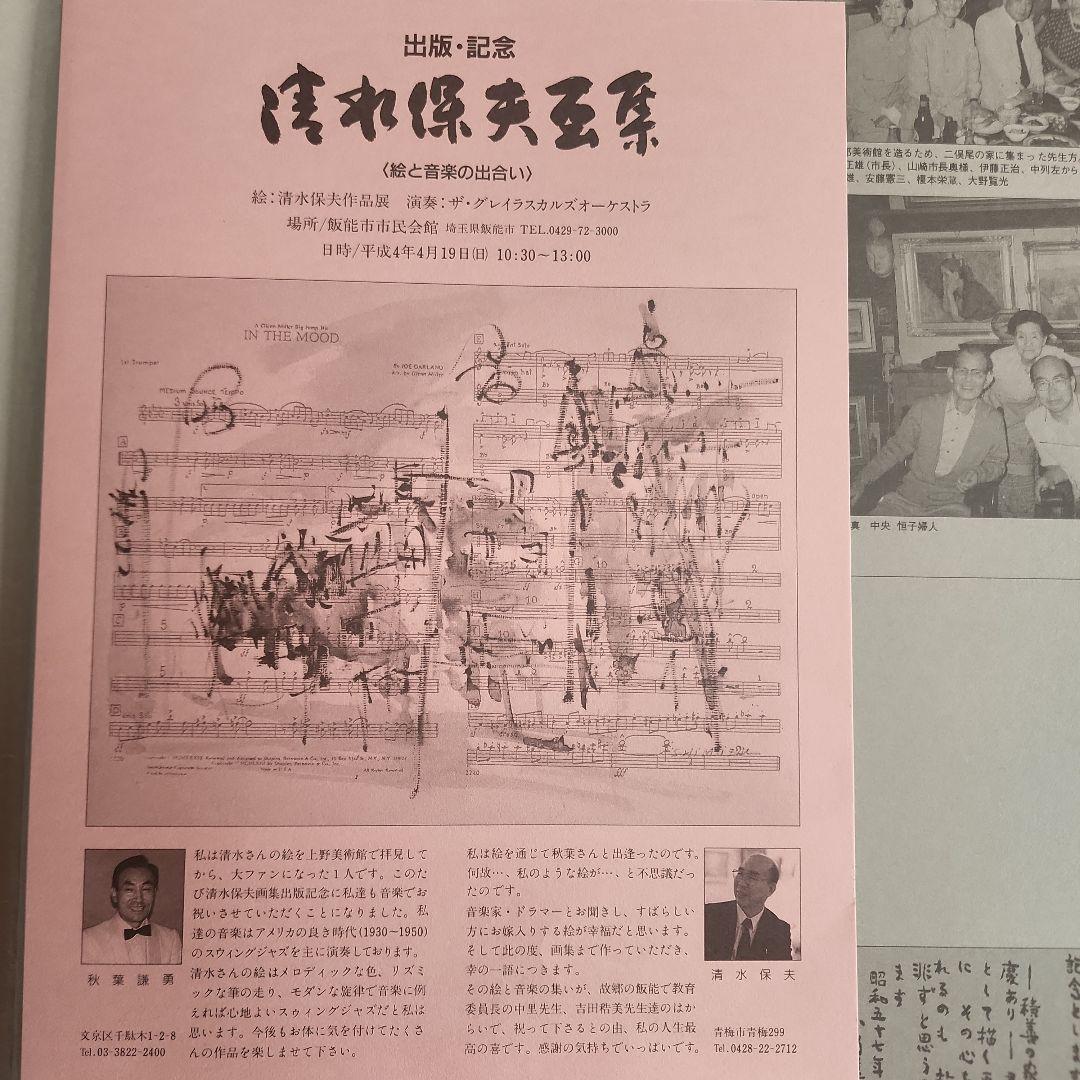 出版・記念
清水保夫画集
〈絵と音楽の出合い〉
絵：清水保夫作品展　演奏：ザ・グレイラスカルズオーケストラ
場所/飯能市市民会館 埼玉県飯能市 TEL.0429-72-3000
日時/平成4年4月19日(日) 10:30〜13:00
A Glenn Miller Big Band Hit
IN THE MOOD
1st Trumpet
By JOE GARLAND
Arr. by Glenn Miller
MEDIUM BOUNCE TEMPO
open
私は清水さんの絵を上野美術館で拝見して
から、大ファンになった1人です。このた
び清水保夫画集出版記念に私達も音楽でお
祝いさせていただくことになりました。私
達の音楽はアメリカの良き時代(1930〜1950)
のスウィングジャズを主に演奏しております。
清水さんの絵はメロディックな色、リズミ
ックな筆の走り、モダンな旋律で音楽に例
えれば心地よいスゥィングジャズだと私は
思います。今後もお体に気を付けてたくさ
んの作品を楽しませて下さい。
秋葉謙勇
文京区千駄木1-2-8
Tel.03-3822-2400
私は絵を通じて秋葉さんと出逢ったのです。
何故…、私のような絵が…、と不思議だっ
たのです。
音楽家・ドラマーとお聞きし、すばらしい
方にお嫁入りする絵が幸福だと思います。
そして此の度、画集まで作っていただき、
幸の一語につきます。
その絵と音楽の集いが、故郷の飯能で教育
委員長の中里先生、吉田稭美先生達のはか
らいで、祝って下さるとの由、私の人生最
高の喜です。感謝の気持ちでいっぱいです。
清水保夫
青梅市青梅299
Tel.0428-22-2712
美術館を造るため、二俣尾の家に集まった先生方
正雄(市長)、山崎市長奥様、伊藤正治、中列左から
雄、安藤憲三、榎本栄蔵、大野覧光
真　中央 恒子婦人
記念としま
積善の家
慶あり
として描く
に その心
れるのも
兆ずと思う
ます
昭和五十七年